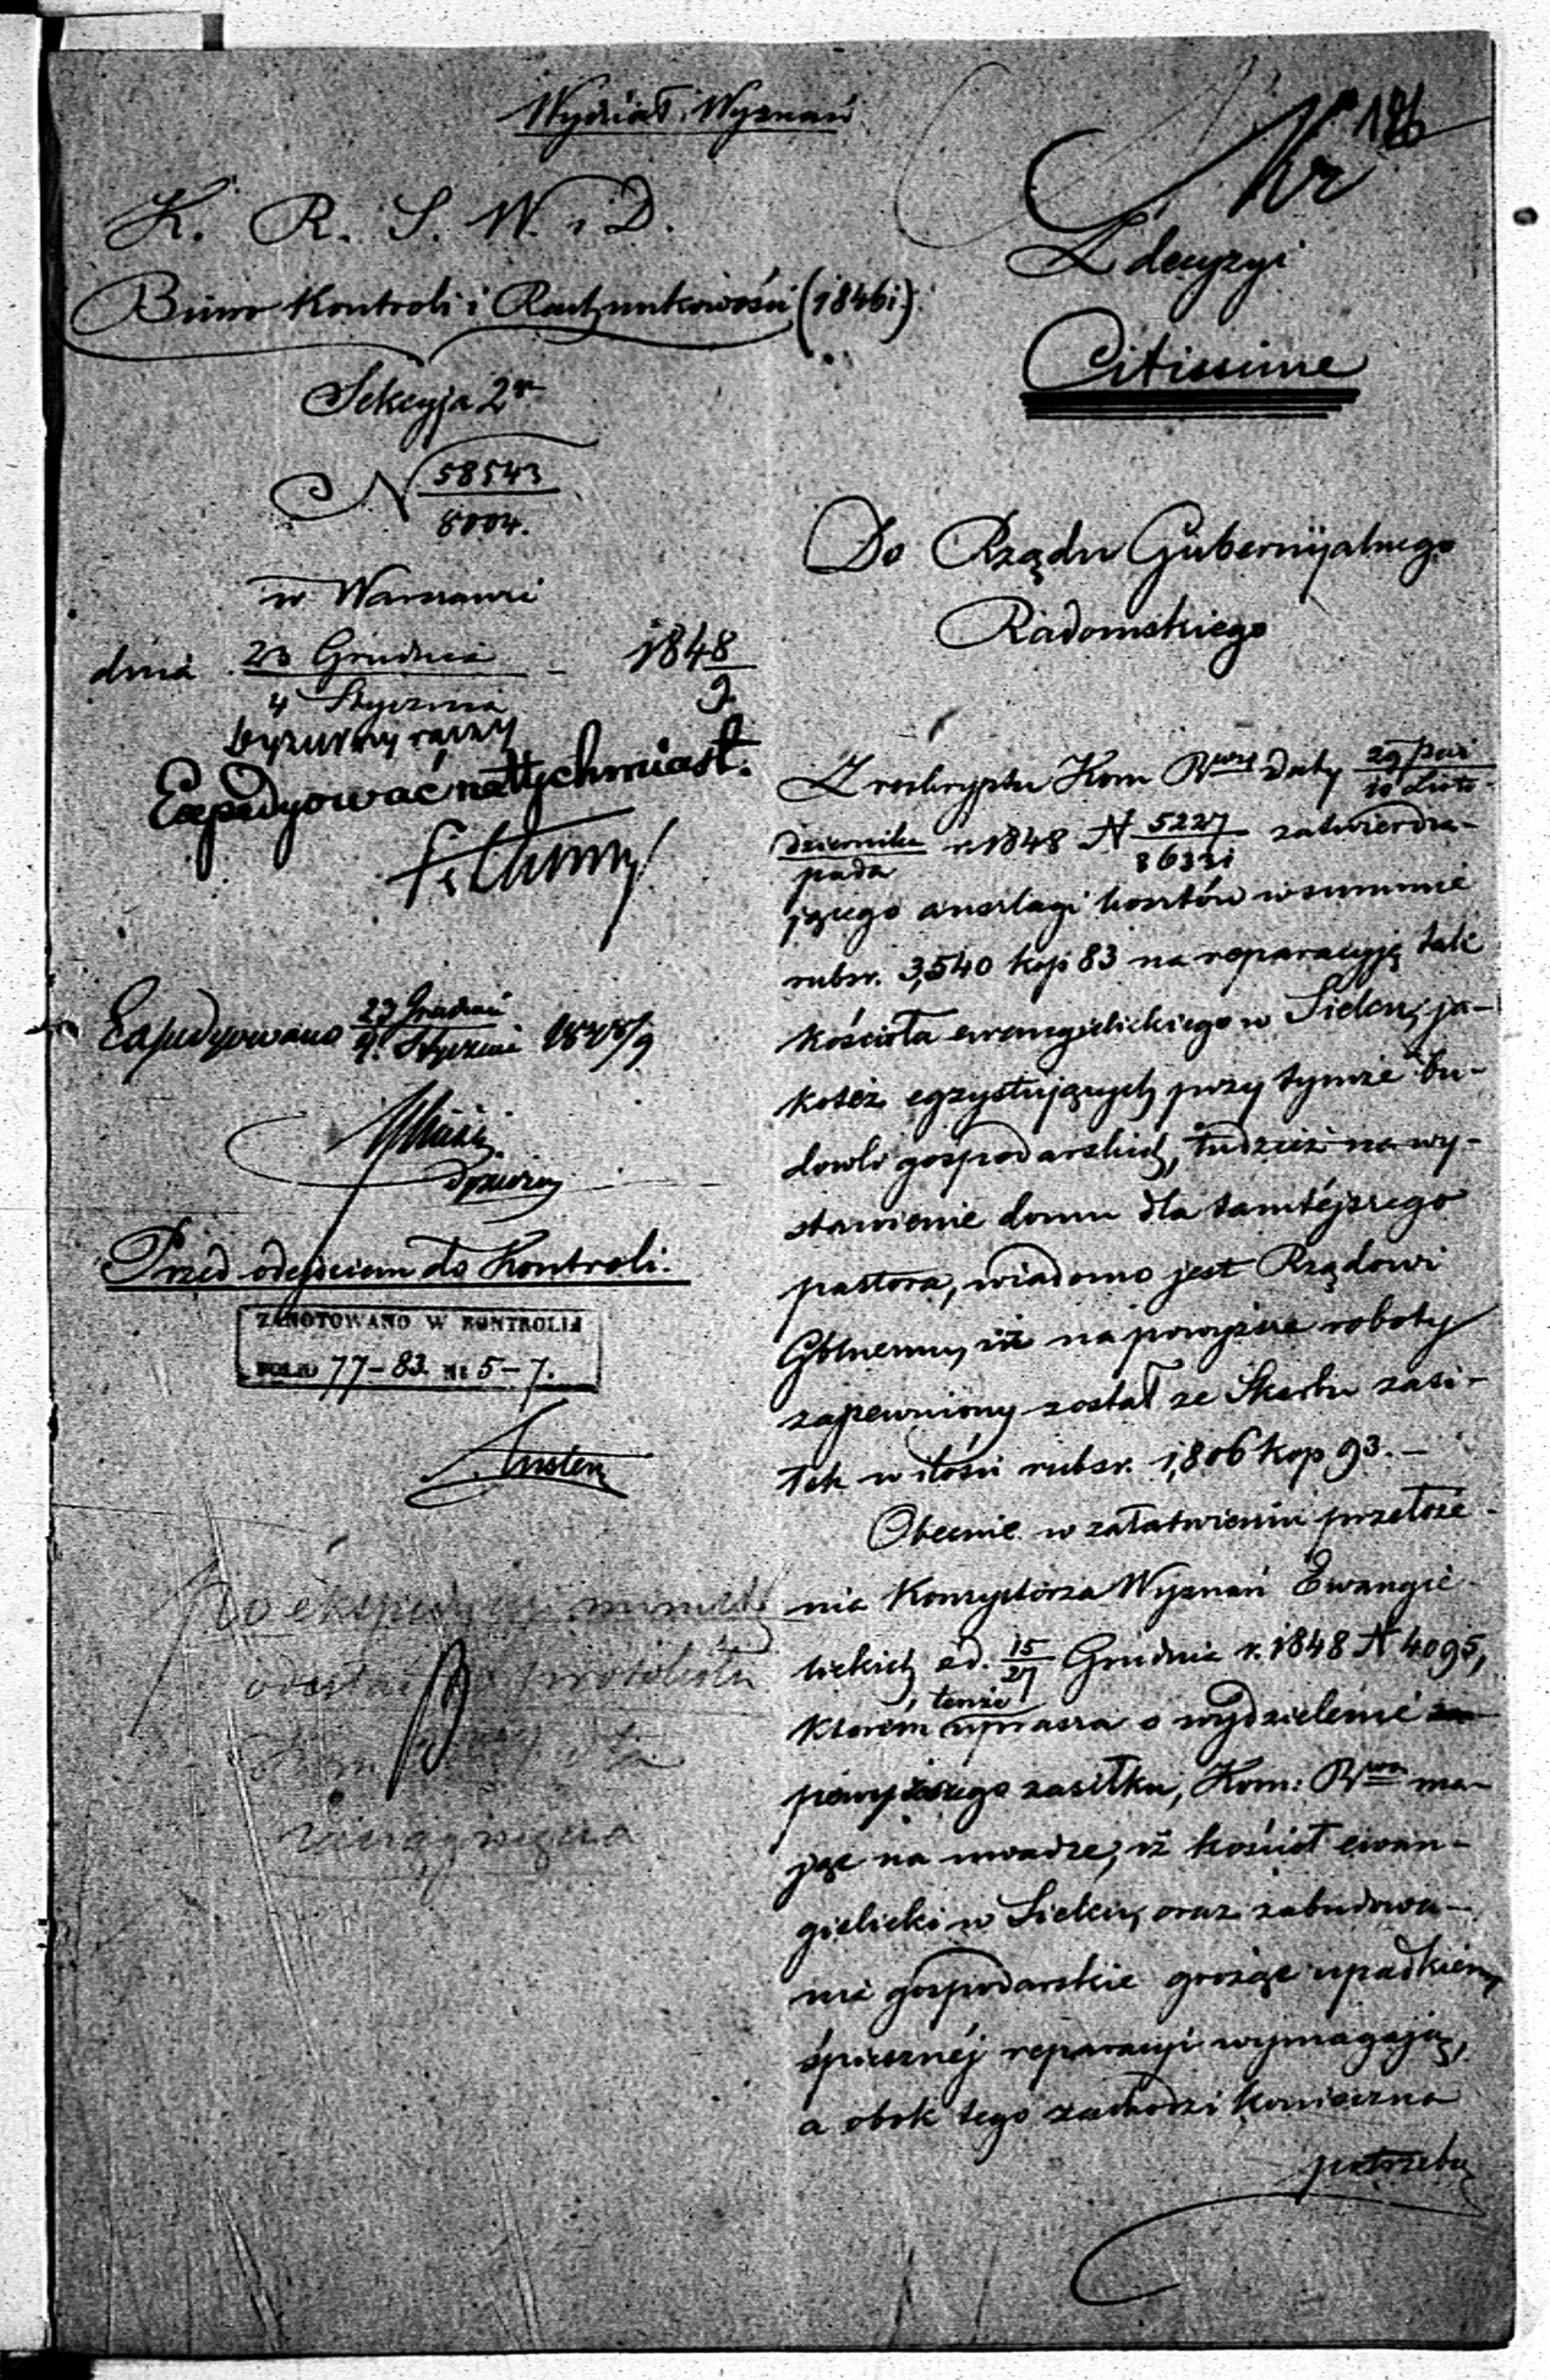 Wydział Wyznań
126
K. R. S. W. i D.
Biuro Kontroli i Rachunkowości (1846 i)
Sekcyja 2ga
N 58543
8004.
w Warszawie
dnia 23 Grudnia 1848
4 Stycznia 9.
Expedyować natychmiast.
Expedyowano 23 Grudnia
4. Stycznia 1848/9
Przed odejściem do Kontroli.
ZANOTOWANO W KONTROLLI
FOLIO 77-83. № 5-7.
Z decyzyi
Citissime
Do Rządu Gubernijalnego
Radomskiego
Z reskryptu Kom Rwej daty 29 Paź
10 Listo-
dziernika r. 1848 N 5227 zatwierdza-
pada 8633i
jącego anszlagi kosztów w summie
rubsr. 3,540 kop 83 na reparacyję tak
kościoła ewangielickiego w Sielcu, ja-
koteż egzystujących przy tymże bu-
dowli gospodarskich, tudzież na wy-
stawienie domu dla tamtéjszego
pastora, wiadomo jest Rządowi
Gblnemu, iż na powyższe roboty
zapewniony został ze Skarbu zasi-
łek w ilości rubsr. 1,806 kop 93. —
Obecnie w załatwieniu przełoże-
nia Konsystorza Wyznań Ewangie-
lickich z d. 15 Grudnia r. 1848 N 4095,
27
tenże
którem uprasza o wydzielenie
powyższego zasiłku, Kom: Rwa ma-
jąc na uwadze, iż kościół ewan-
gielicki w Sielcu, oraz zabudowa-
nia gospodarskie grożąc upadkiem,
śpiesznéj reparacyi wymagają,
a obok tego zachodzi konieczna
potrzeba